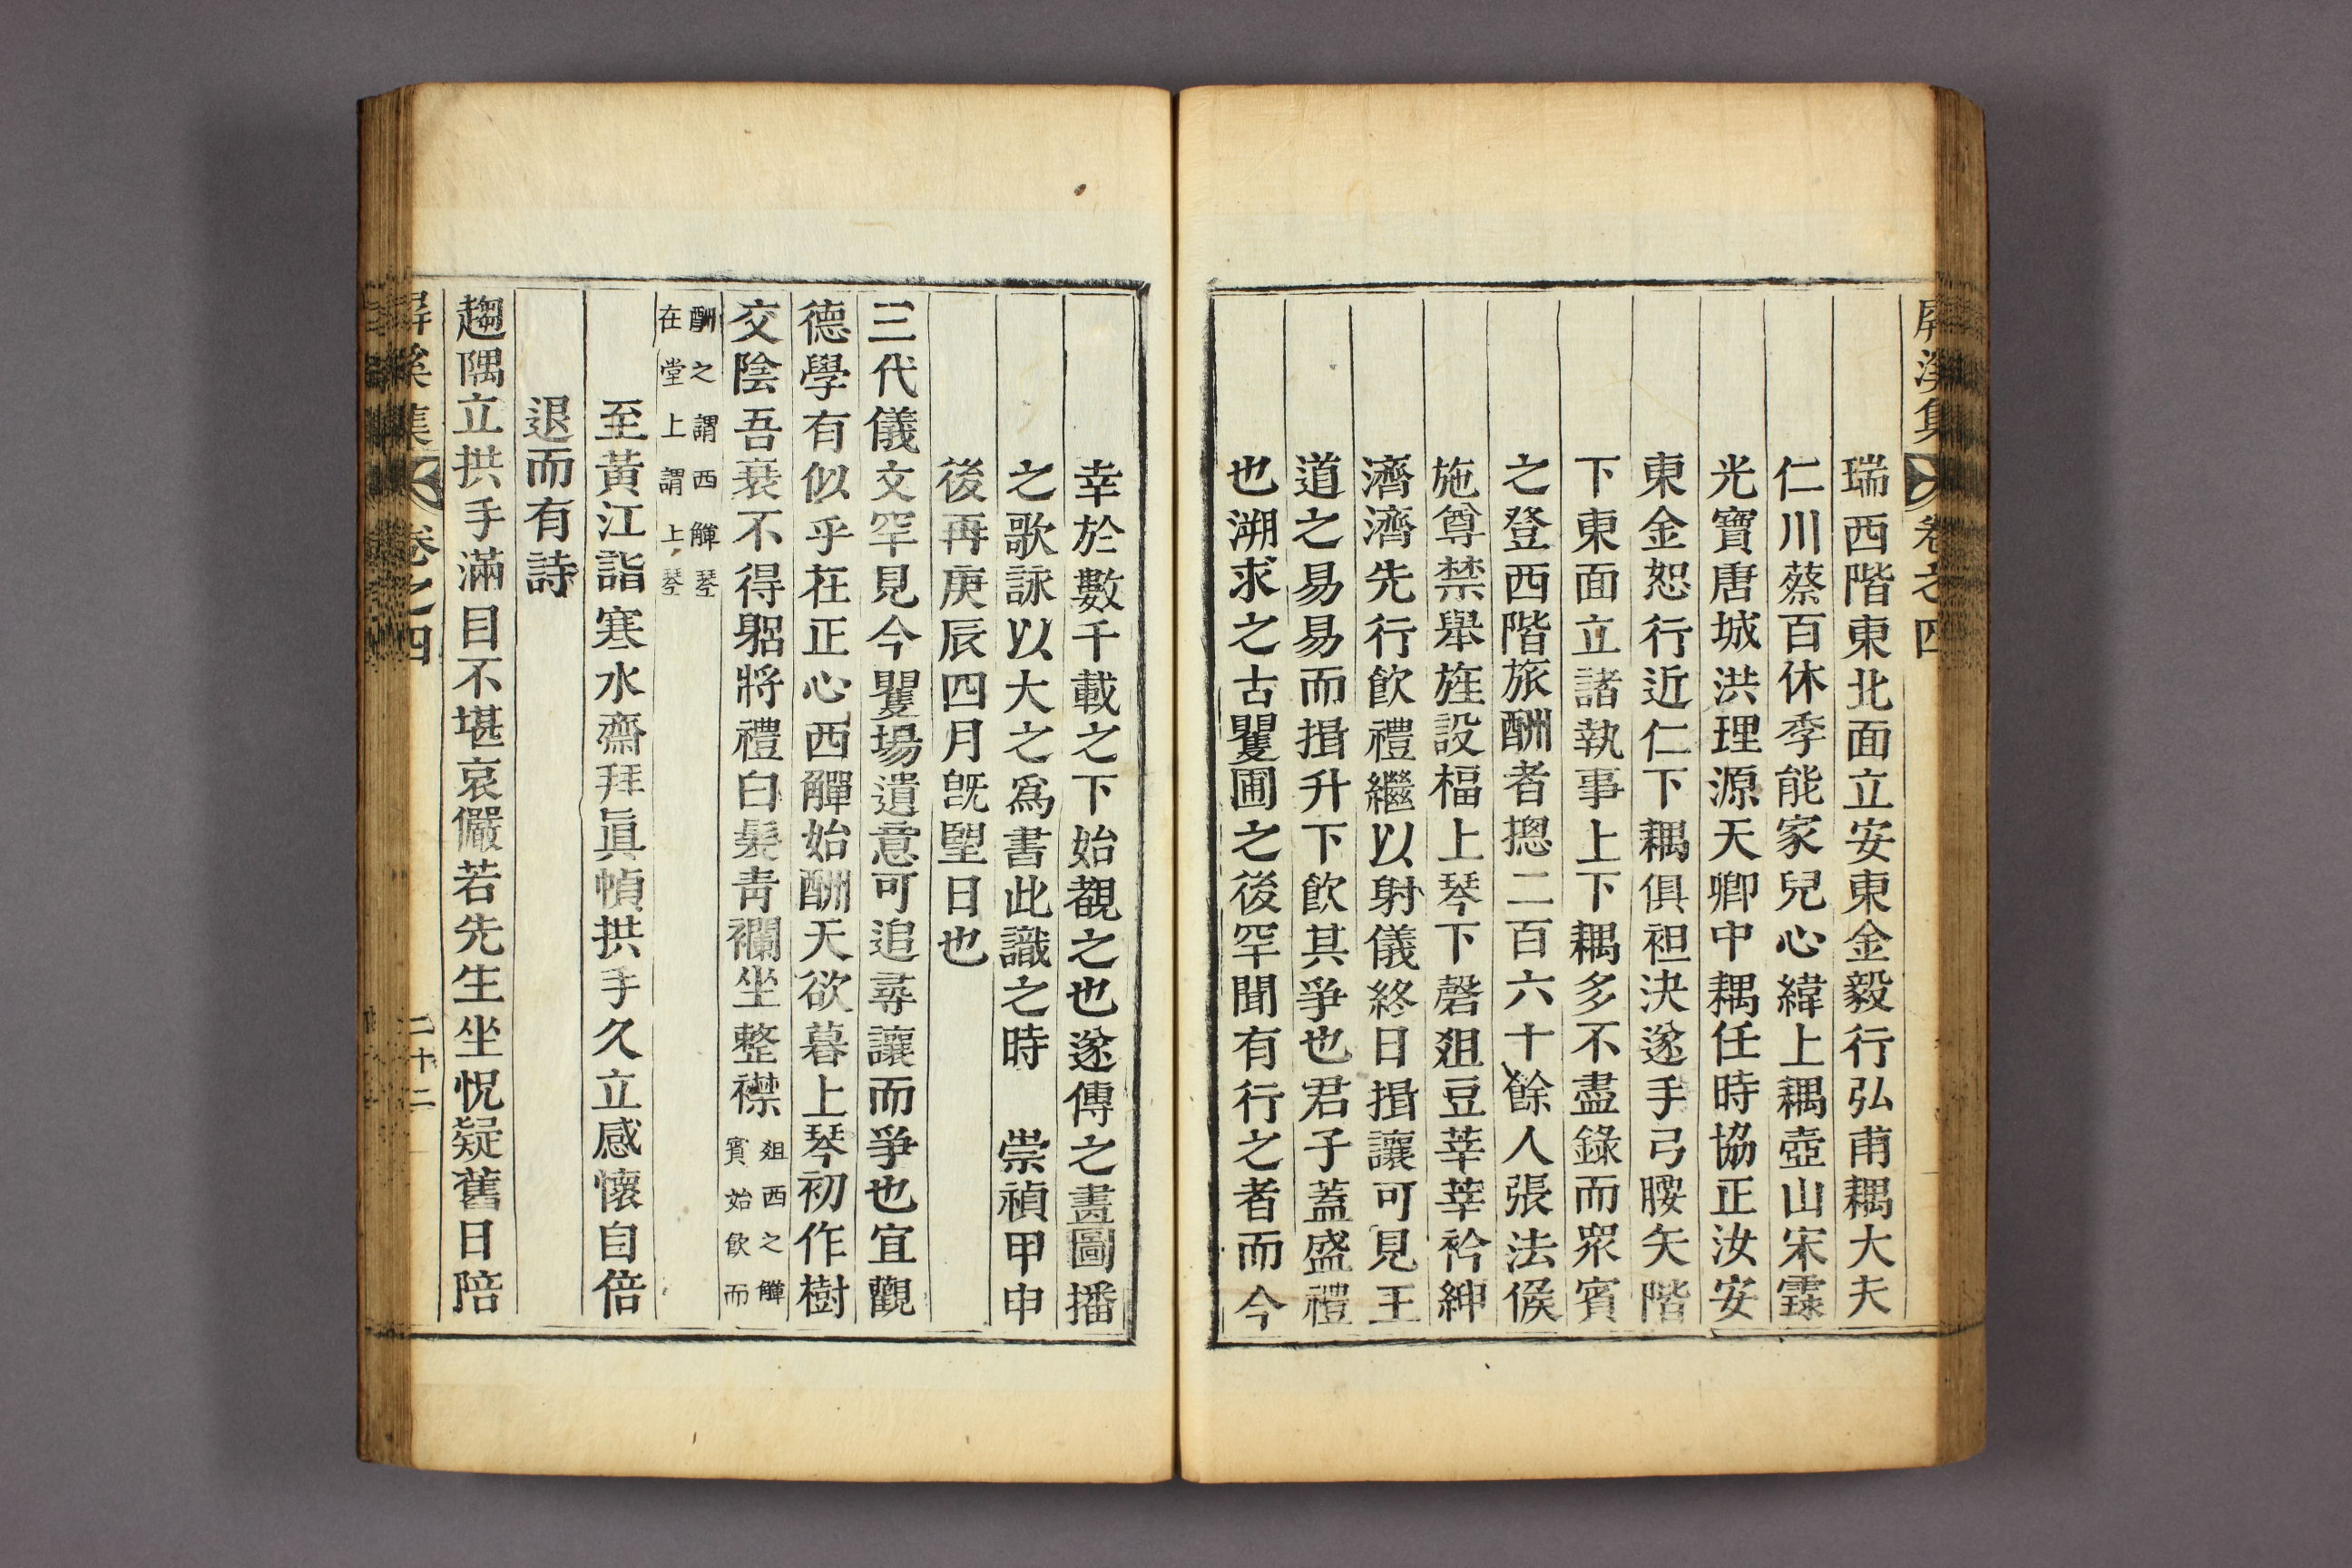 屛溪集 卷之四
瑞西階東北面立安東金毅行弘甫耦大夫
仁川蔡百休季能家兒心緯上耦壺山宋霂
光寶唐城洪理源天卿中耦任時協正汝安
東金恕行近仁下耦俱袒決遂手弓腰矢階
下東面立諸執事上下耦多不盡錄而眾賓
之登西階旅酬者摠二百六十餘人張法侯
施尊禁舉旌設楅上琴下磬俎豆莘莘衿紳
濟濟先行飮禮繼以射儀終日揖讓可見王
道之易易而揖升下飮其爭也君子蓋盛禮
也溯求之古矍圃之後罕聞有行之者而今
幸於數千載之下始覩之也遂傳之畫圖播
之歌詠以大之爲書此識之時　崇禎甲申
後再庚辰四月旣朢日也
三代儀文罕見今矍場遺意可追尋讓而爭也宜觀
德學有似乎在正心西觶始酬天欲暮上琴初作樹
交陰吾衰不得躬將禮白髮靑襴坐整襟俎西之觶賓始飮而
酬之謂西觶琴在堂上謂上琴
至黃江詣寒水齋拜眞幀拱手久立感懷自倍
退而有詩
趨隅立拱手滿目不堪哀儼若先生坐怳疑舊日陪
屛溪集 卷之四 二十二